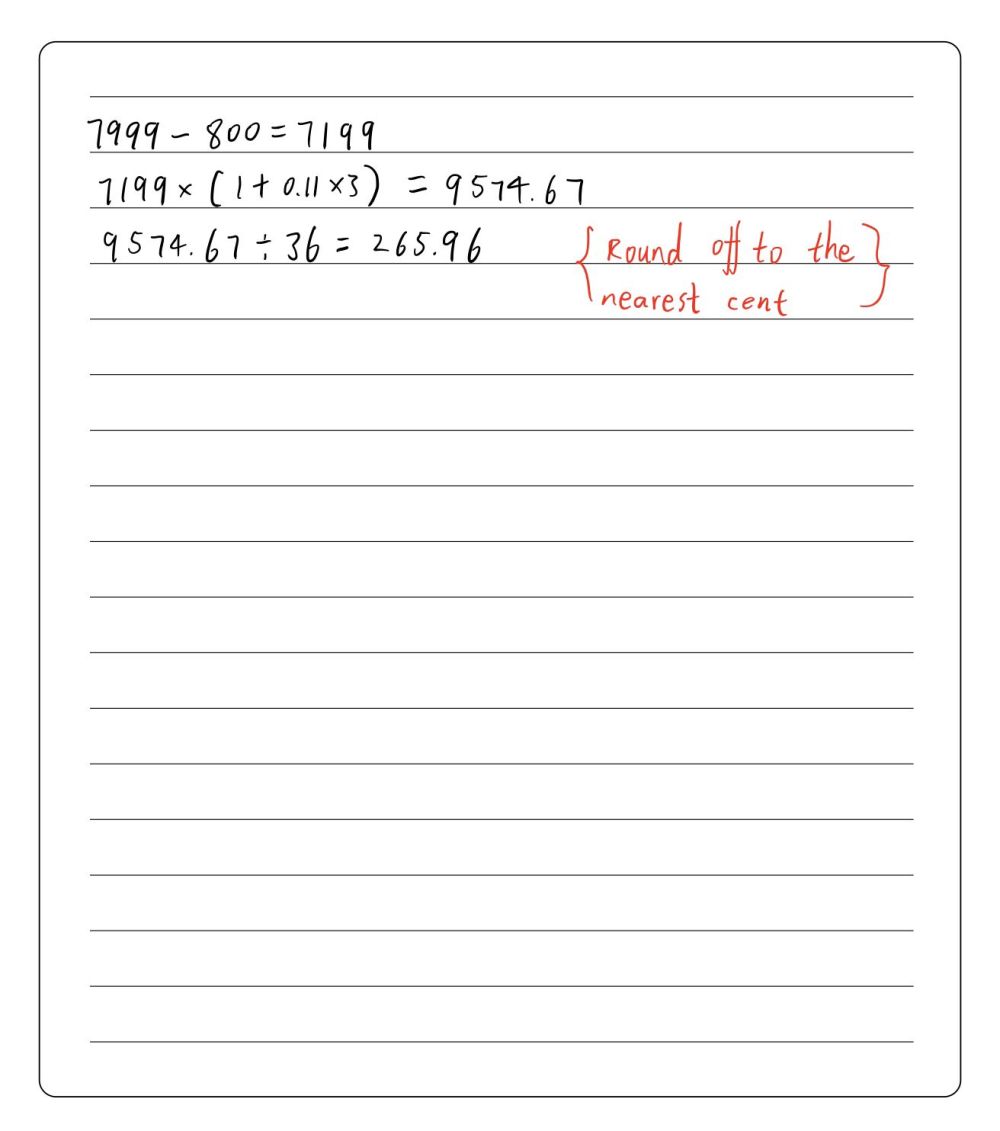 7999 - 800 = 7199
7199 × (1 + 0.11 × 3) = 9574.67
9574.67 ÷ 36 = 265.96 {Round off to the
nearest cent}